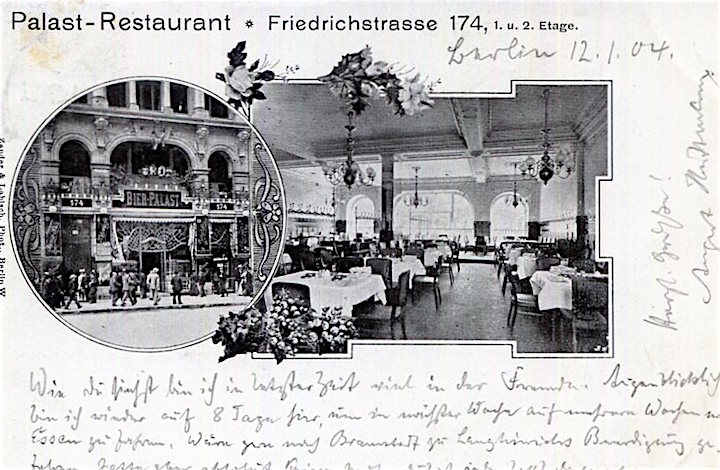 Palast-Restaurant * Friedrichstrasse 174, 1. u. 2. Etage.
Berlin 12.1.04.
174 BIER-PALAST 174
Zander & Labisch, Photo, Berlin W.
Herzl. Grüße!
August
Wie du siehst bin ich in letzter Zeit viel in der Fremde. Augenblicklich
bin ich wieder auf 8 Tage hier, um in nächster Woche auf mehrere Wochen n
Essen zu fahren. Wäre gern nach Bramstedt zu Beerdigung ge